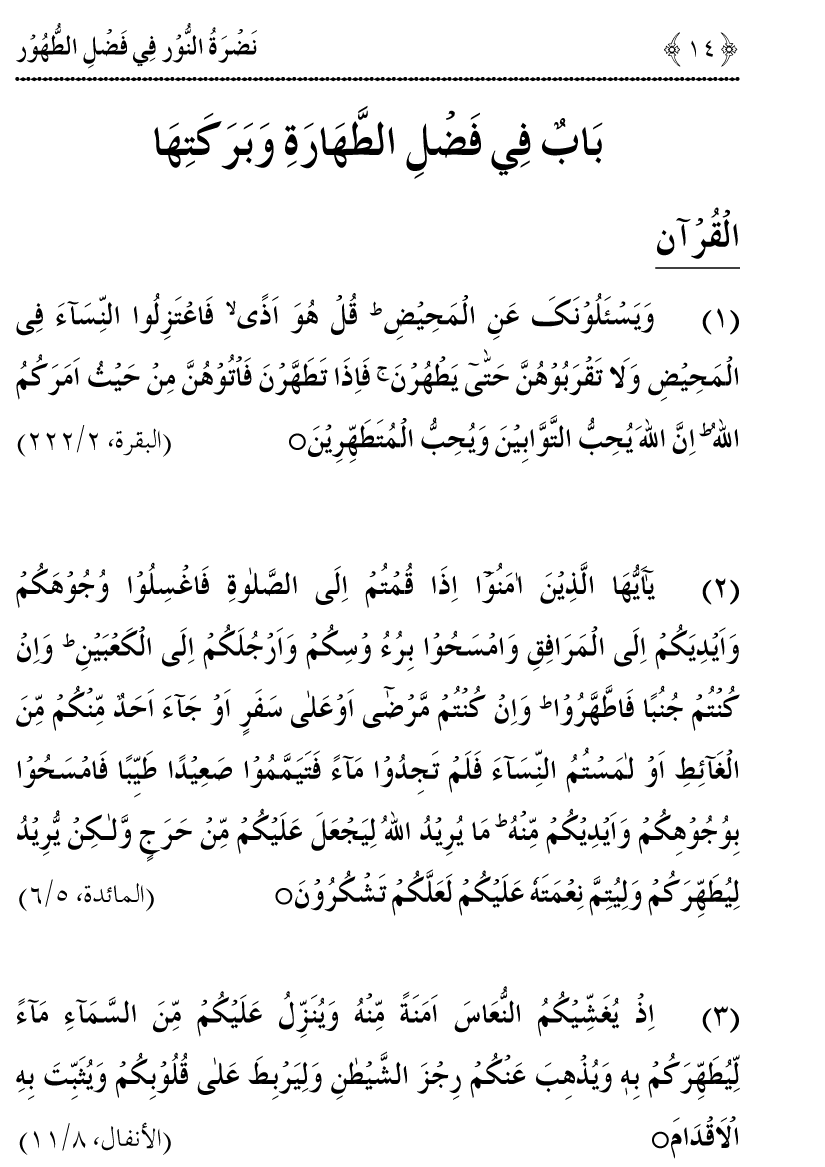 ﴿١٤﴾ نَضْرَةُ النُّوْر فِي فَضْلِ الطُّهُوْر
بَابٌ فِي فَضْلِ الطَّهَارَةِ وَبَرَكَتِهَا
الْقُرْآن
(١) وَيَسْئَلُوْنَکَ عَنِ الْمَحِيْضِ ؕ قُلْ هُوَ اَذًی ۙ فَاعْتَزِلُوا النِّسَآءَ فِی
الْمَحِيْضِ وَلَا تَقْرَبُوْهُنَّ حَتّٰی يَطْهُرْنَ ۚ فَاِذَا تَطَهَّرْنَ فَاْتُوْهُنَّ مِنْ حَيْثُ اَمَرَکُمُ
اللهُ ؕ اِنَّ اللهَ يُحِبُّ التَّوَّابِيْنَ وَيُحِبُّ الْمُتَطَهِّرِيْنَ○ (البقرة، ٢/٢٢٢)
(٢) يٰٓاَيُّهَا الَّذِيْنَ اٰمَنُوْٓا اِذَا قُمْتُمْ اِلَی الصَّلٰوةِ فَاغْسِلُوْا وُجُوْهَکُمْ
وَاَيْدِيَکُمْ اِلَی الْمَرَافِقِ وَامْسَحُوْا بِرُءُ وْسِکُمْ وَاَرْجُلَکُمْ اِلَی الْکَعْبَيْنِ ؕ وَاِنْ
کُنْتُمْ جُنُبًا فَاطَّهَّرُوْا ؕ وَاِنْ کُنْتُمْ مَّرْضٰٓی اَوْ عَلٰی سَفَرٍ اَوْ جَآءَ اَحَدٌ مِّنْکُمْ مِّنَ
الْغَآئِطِ اَوْ لٰمَسْتُمُ النِّسَآءَ فَلَمْ تَجِدُوْا مَآءً فَتَيَمَّمُوْا صَعِيْدًا طَيِّبًا فَامْسَحُوْا
بِوُجُوْهِکُمْ وَاَيْدِيْکُمْ مِّنْهُ ؕ مَا يُرِيْدُ اللهُ لِيَجْعَلَ عَلَيْکُمْ مِّنْ حَرَجٍ وَّلٰـکِنْ يُّرِيْدُ
لِيُطَهِّرَکُمْ وَلِيُتِمَّ نِعْمَتَهٗ عَلَيْکُمْ لَعَلَّکُمْ تَشْکُرُوْنَ○ (المائدة، ٥/٦)
(٣) اِذْ يُغَشِّيْکُمُ النُّعَاسَ اَمَنَةً مِّنْهُ وَيُنَزِّلُ عَلَيْکُمْ مِّنَ السَّمَآءِ مَآءً
لِّيُطَهِّرَکُمْ بِهٖ وَيُذْهِبَ عَنْکُمْ رِجْزَ الشَّيْطٰنِ وَلِيَرْبِطَ عَلٰی قُلُوْبِکُمْ وَيُثَبِّتَ بِهِ
الْاَقْدَامَ○ (الأنفال، ٨/١١)